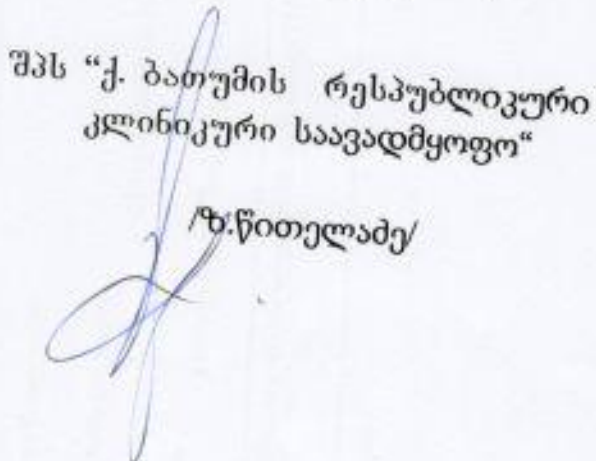 შპს “ქ. ბათუმის რესპუბლიკური
კლინიკური საავადმყოფო“
/ზ.წითელაძე/